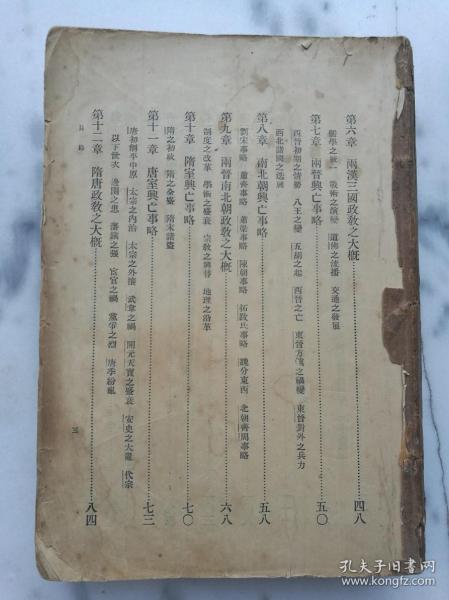 第六章　兩漢三國政教之大概………四八
儒學之統一　戰術之演變　道佛之流播　交通之發展
第七章　兩晉興亡事略………五〇
西晉初期之情勢　八王之變　五胡之起　西晉之亡　東晉方鎮之禍變　東晉對外之兵力
西北諸國之迭興
第八章　南北朝興亡事略………五八
劉宋事略　蕭齊事略　蕭梁事略　陳朝事略　拓跋氏事略　魏分東西　北朝齊周事略
第九章　兩晉南北朝政教之大概………六八
制度之改革　學術之盛衰　宗教之興替　地理之沿革
第十章　隋室興亡事略………七〇
隋之初政　隋之全盛　隋末諸盜
第十一章　唐室興亡事略………七三
唐初削平中原　太宗之內治　太宗之外攘　武韋之禍　開元天寶之盛衰　安史之大亂　代宗
以下世次　邊圉之患　藩鎮之強　宦官之禍　黨爭之烈　唐季紛亂
第十二章　隋唐政教之大概………八四
目錄
三
孔夫子旧书网
www.kongfz.com